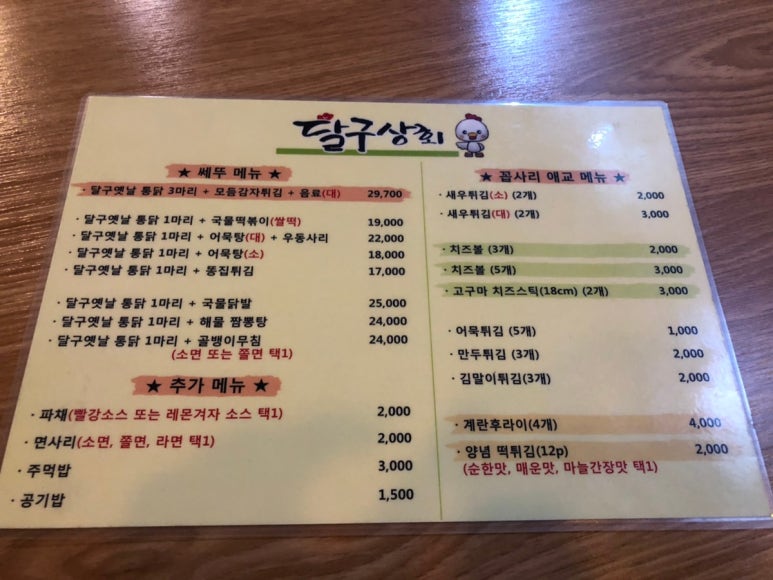 달구상회
★ 쎄뚜 메뉴 ★
· 달구옛날 통닭 3마리 + 모듬감자튀김 + 음료(대) 29,700
· 달구옛날 통닭 1마리 + 국물떡볶이(쌀떡) 19,000
· 달구옛날 통닭 1마리 + 어묵탕(대) + 우동사리 22,000
· 달구옛날 통닭 1마리 + 어묵탕(소) 18,000
· 달구옛날 통닭 1마리 + 똥집튀김 17,000
· 달구옛날 통닭 1마리 + 국물닭발 25,000
· 달구옛날 통닭 1마리 + 해물 짬뽕탕 24,000
· 달구옛날 통닭 1마리 + 골뱅이무침 24,000
(소면 또는 쫄면 택1)
★ 추가 메뉴 ★
· 파채(빨강소스 또는 레몬겨자 소스 택1) 2,000
· 면사리(소면, 쫄면, 라면 택1) 2,000
· 주먹밥 3,000
· 공기밥 1,500
★ 꼽사리 애교 메뉴 ★
· 새우튀김(소) (2개) 2,000
· 새우튀김(대) (2개) 3,000
· 치즈볼 (3개) 2,000
· 치즈볼 (5개) 3,000
· 고구마 치즈스틱(18cm) (2개) 3,000
· 어묵튀김 (5개) 1,000
· 만두튀김 (3개) 2,000
· 김말이튀김(3개) 2,000
· 계란후라이(4개) 4,000
· 양념 떡튀김(12p) 2,000
(순한맛, 매운맛, 마늘간장맛 택1)